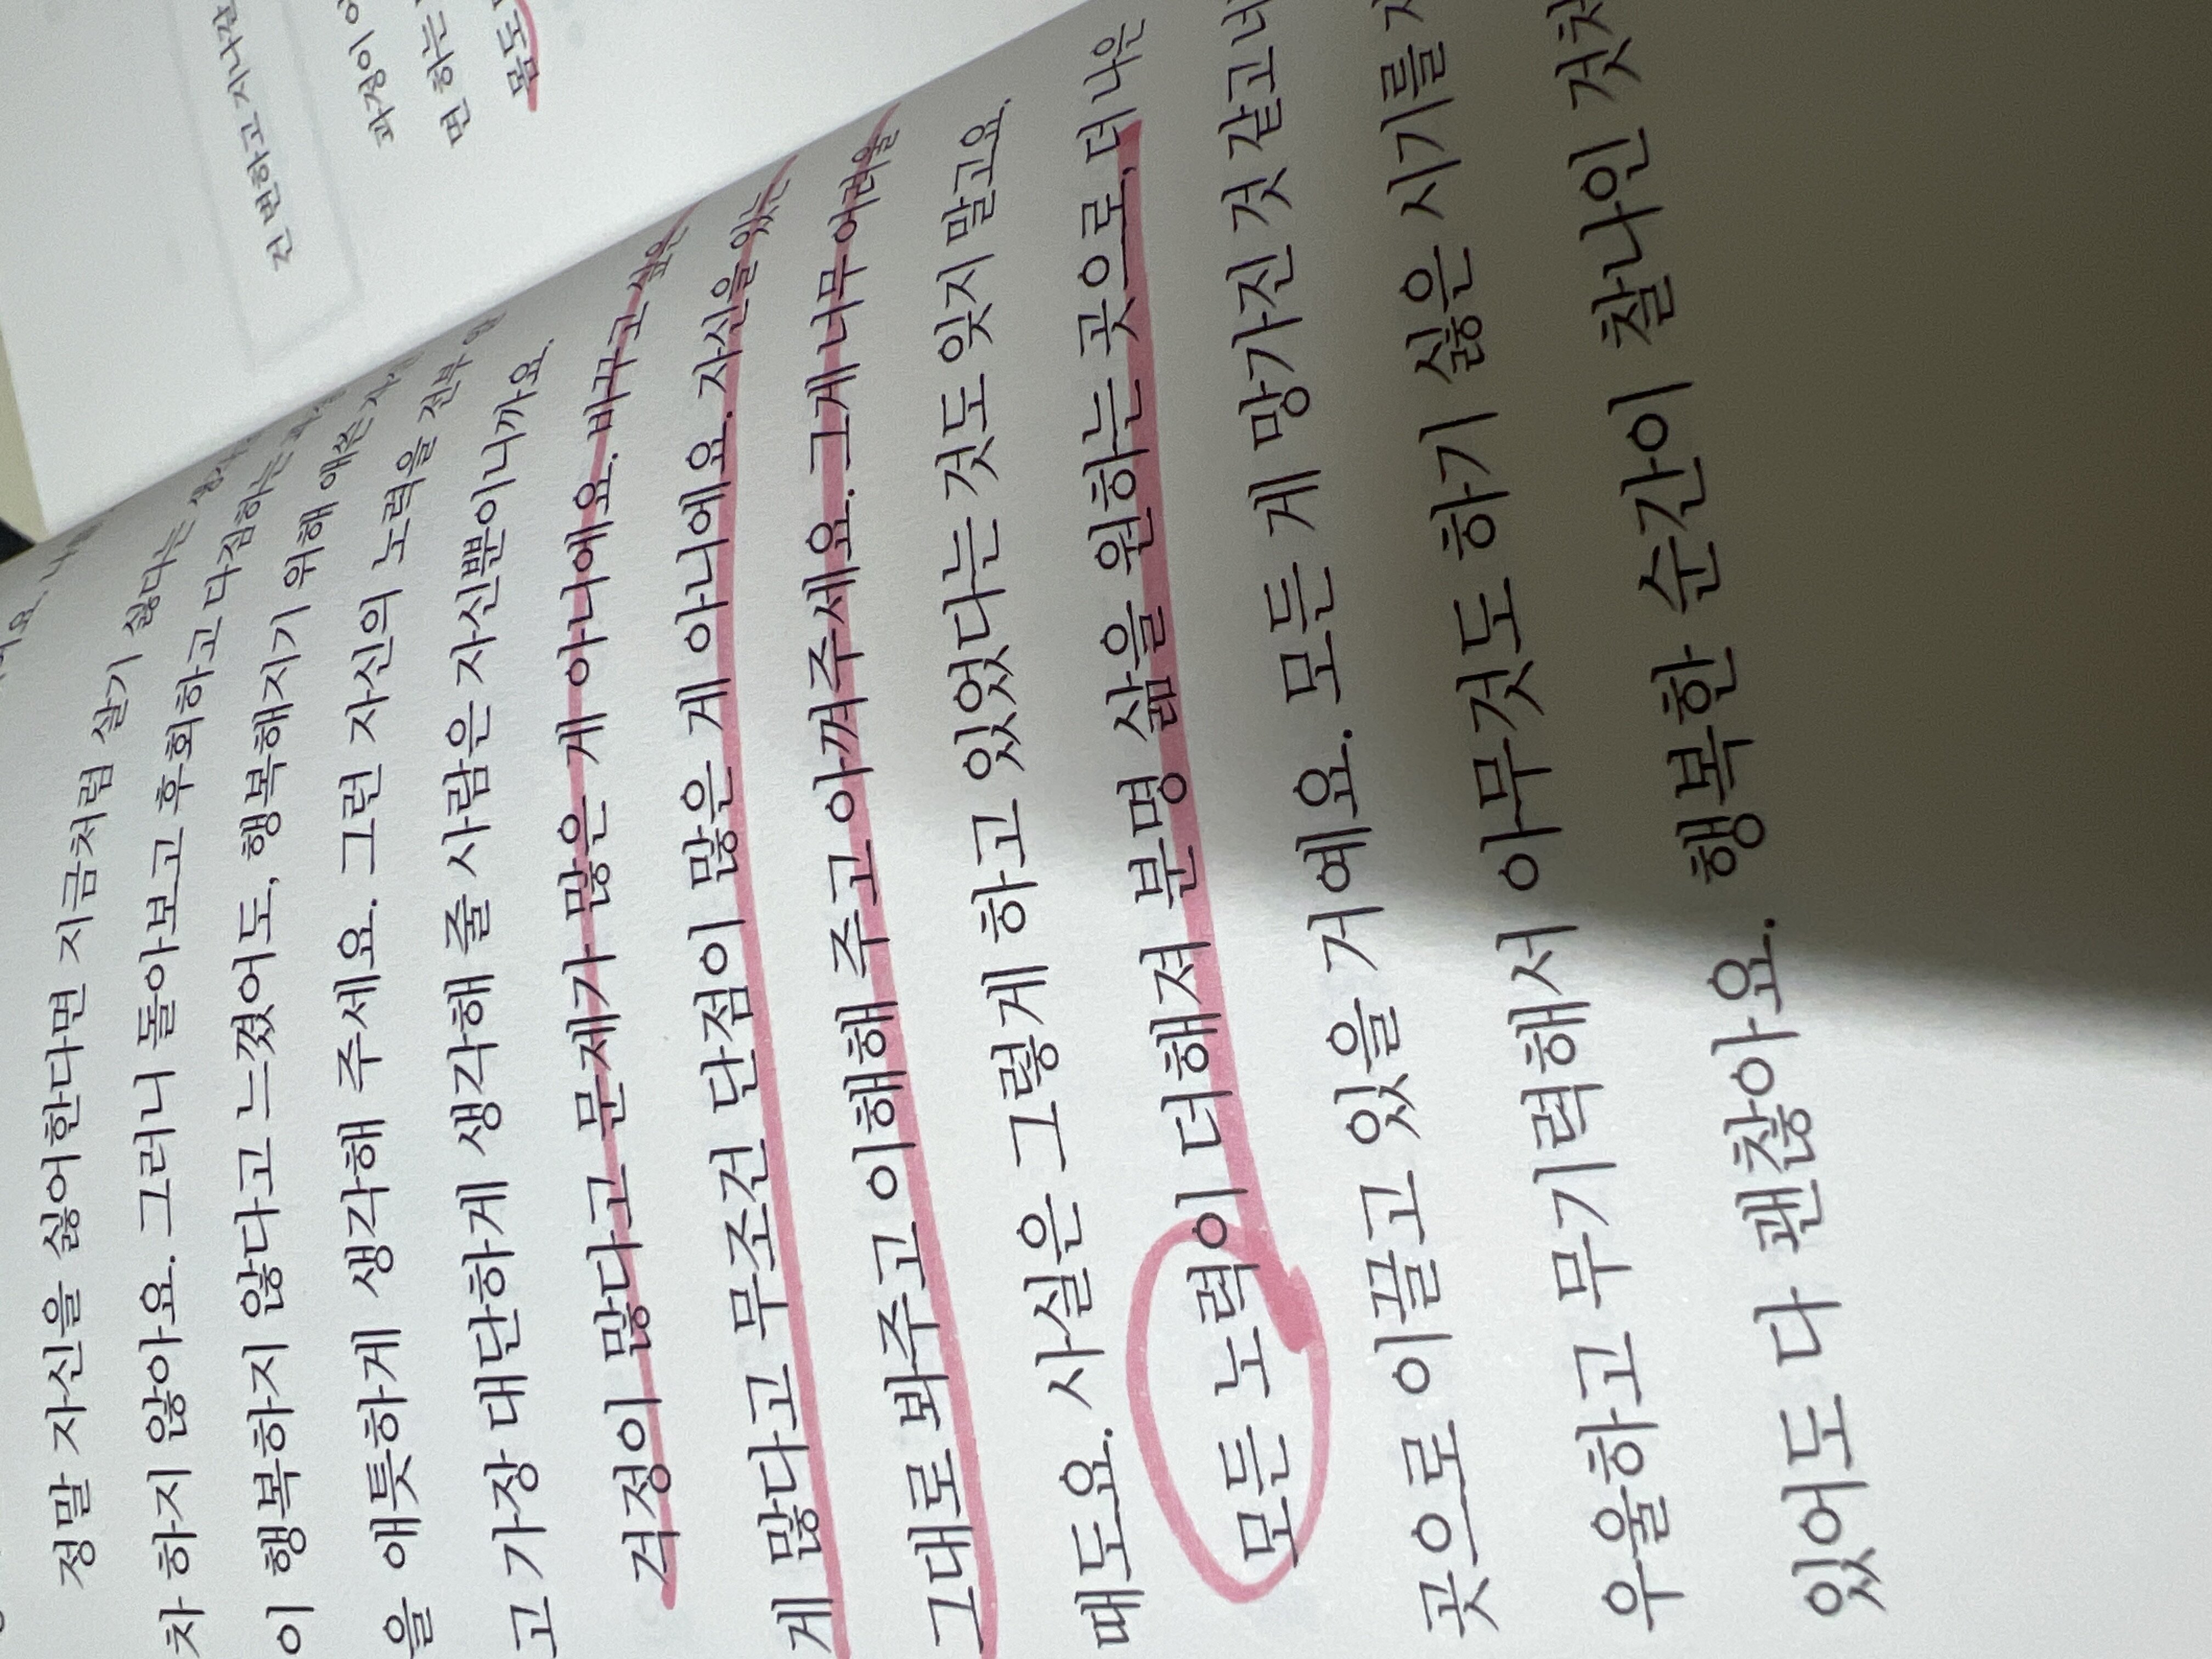 정말 자신을 싫어한다면 지금처럼 살기 싫다는
차 하지 않아요. 그러니 돌아보고 후회하고 다짐하는
이 행복하지 않다고 느꼈어도, 행복해지기 위해 애쓴
을 애틋하게 생각해 주세요. 그런 자신의 노력을 전부
고 가장 대단하게 생각해 줄 사람은 자신뿐이니까요.
걱정이 많다고 문제가 많은 게 아니에요. 바꾸고 싶은
게 많다고 무조건 단점이 많은 게 아니에요. 자신을 있는
그대로 봐주고 이해해 주고 아껴주세요. 그게 너무 어려울
때도요. 사실은 그렇게 하고 있었다는 것도 잊지 말고요.
모든 노력이 더해져 분명 삶을 원하는 곳으로, 더 나은
곳으로 이끌고 있을 거예요. 모든 게 망가진 것 같고
우울하고 무기력해서 아무것도 하기 싫은 시기를
있어도 다 괜찮아요. 행복한 순간이 찰나인
전 변하고
과정이
면 하는